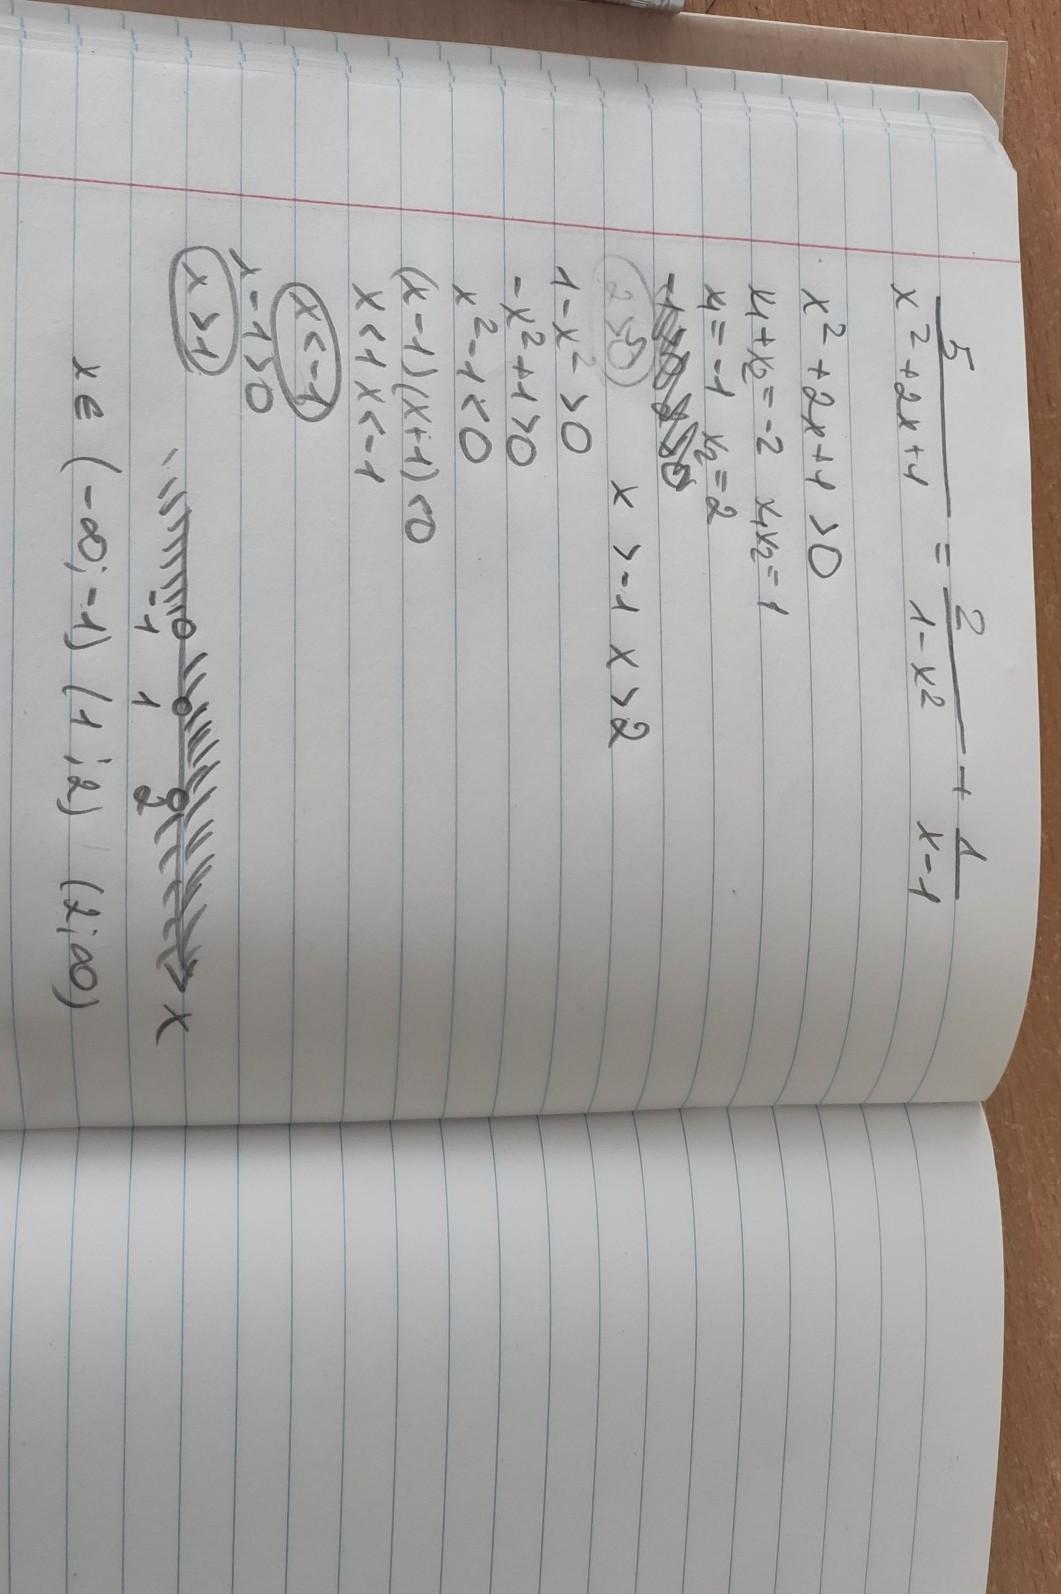 5/(x²+2x+1) = 2/(1-x²) + 1/(x-1)
x²+2x+1 >0
x₁+x₂=-2 x₁x₂=1
x₁=-1 x₂=2
x >-1 x >2
1-x² >0
-x²+1>0
x²-1<0
(x-1)(x+1)<0
x<1 x<-1
x<-1
x-1>0
x>1
-1 1 2 x
x∈ (-∞;-1) (1;2) (2;∞)